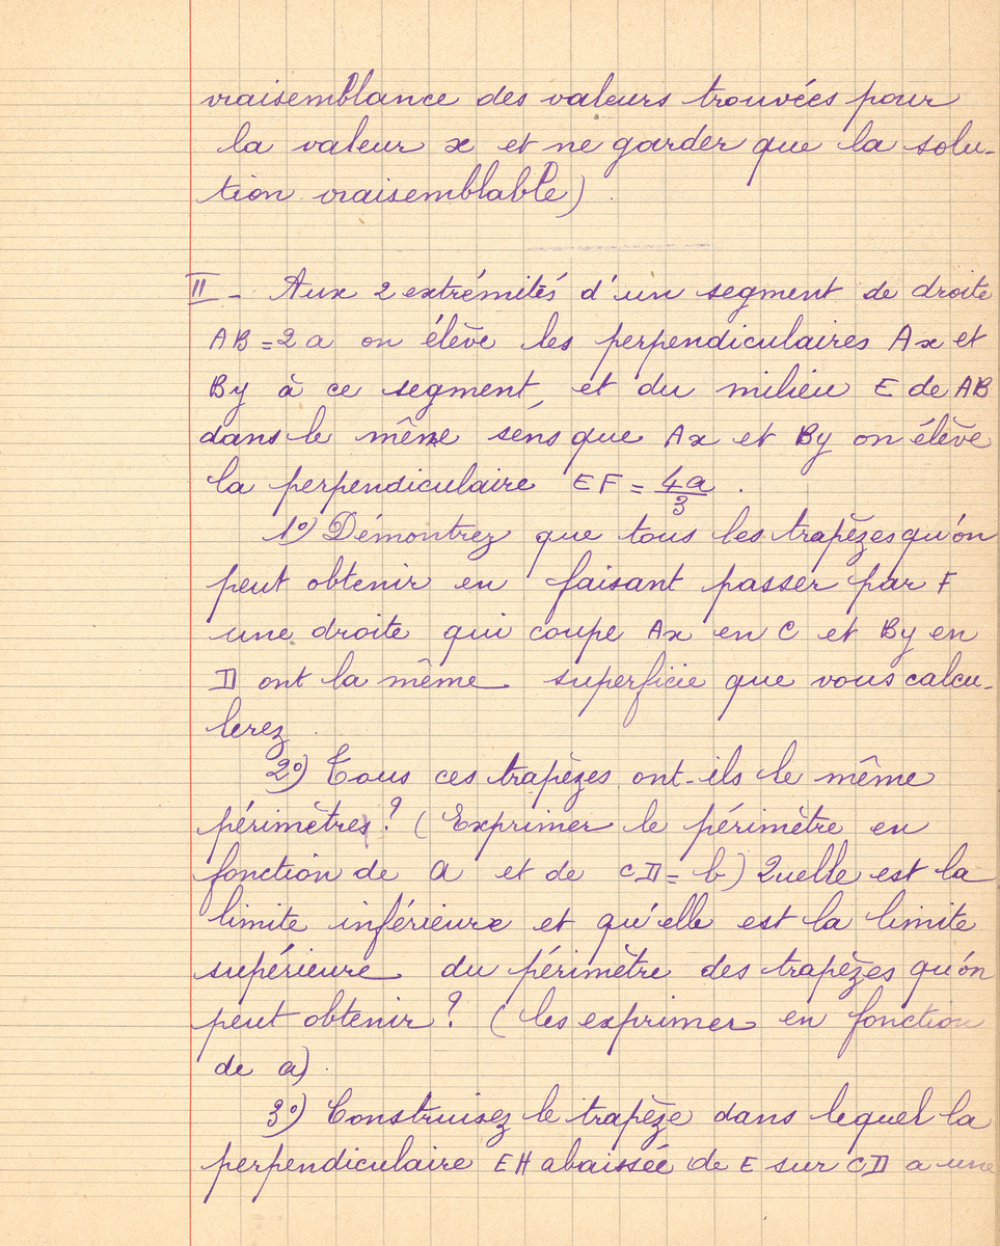 vraisemblance des valeurs trouvées pour
la valeur x et ne garder que la solu-
tion vraisemblable)
II - Aux 2 extrémités d'un segment de droite
AB = 2a on élève les perpendiculaires Ax et
By à ce segment, et du milieu E de AB
dans le même sens que Ax et By on élève
la perpendiculaire EF = 4a/3 .
1°) Démontrez que tous les trapèzes qu'on
peut obtenir en faisant passer par F
une droite qui coupe Ax en C et By en
D ont la même superficie que vous calcu-
lerez.
2°) Tous ces trapèzes ont-ils le même
périmètre? (Exprimer le périmètre en
fonction de a et de CD = b) Quelle est la
limite inférieure et qu'elle est la limite
supérieure du périmètre des trapèzes qu'on
peut obtenir? (les exprimer en fonction
de a).
3°) Construisez le trapèze dans lequel la
perpendiculaire EH abaissée de E sur CD a une